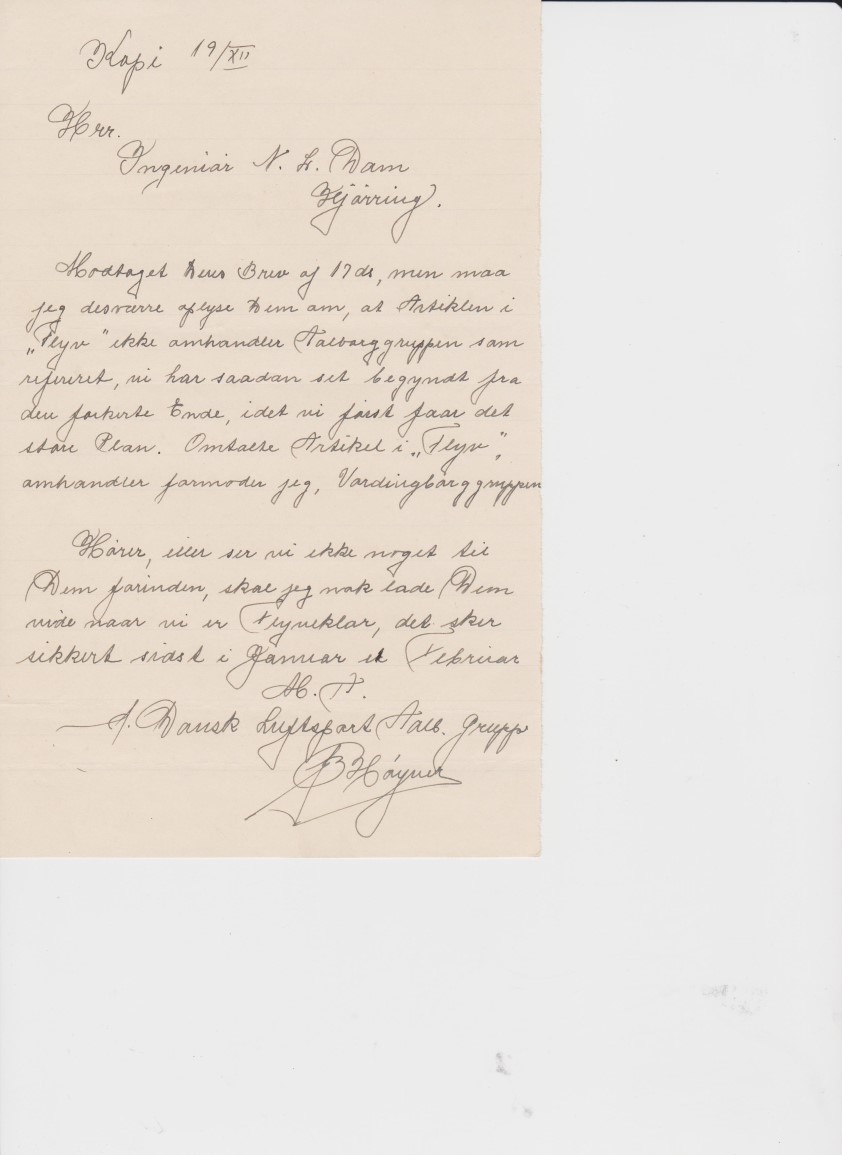 Kopi 19/XII
Hrr.
Ingeniør N. L. Dam
Hjørring.
Modtaget Deres Brev af 17 ds, men maa
jeg desværre oplyse Dem om, at Artiklen i
„Flyv" ikke omhandler Aalborggruppen som
refereret, vi har saadan set begyndt fra
den forkerte Ende, idet vi først faar det
store Plan. Omtalte Artikel i „Flyv"
omhandler formoder jeg, Vordingborggruppen
Hører, eller ser vi ikke noget til
Dem forinden, skal jeg nok lade Dem
vide naar vi er Flyveklar, det sker
sikkert sidst i Januar el Februar
M. F.
f. Dansk Luftsport Aalb. Grupp
Høyner